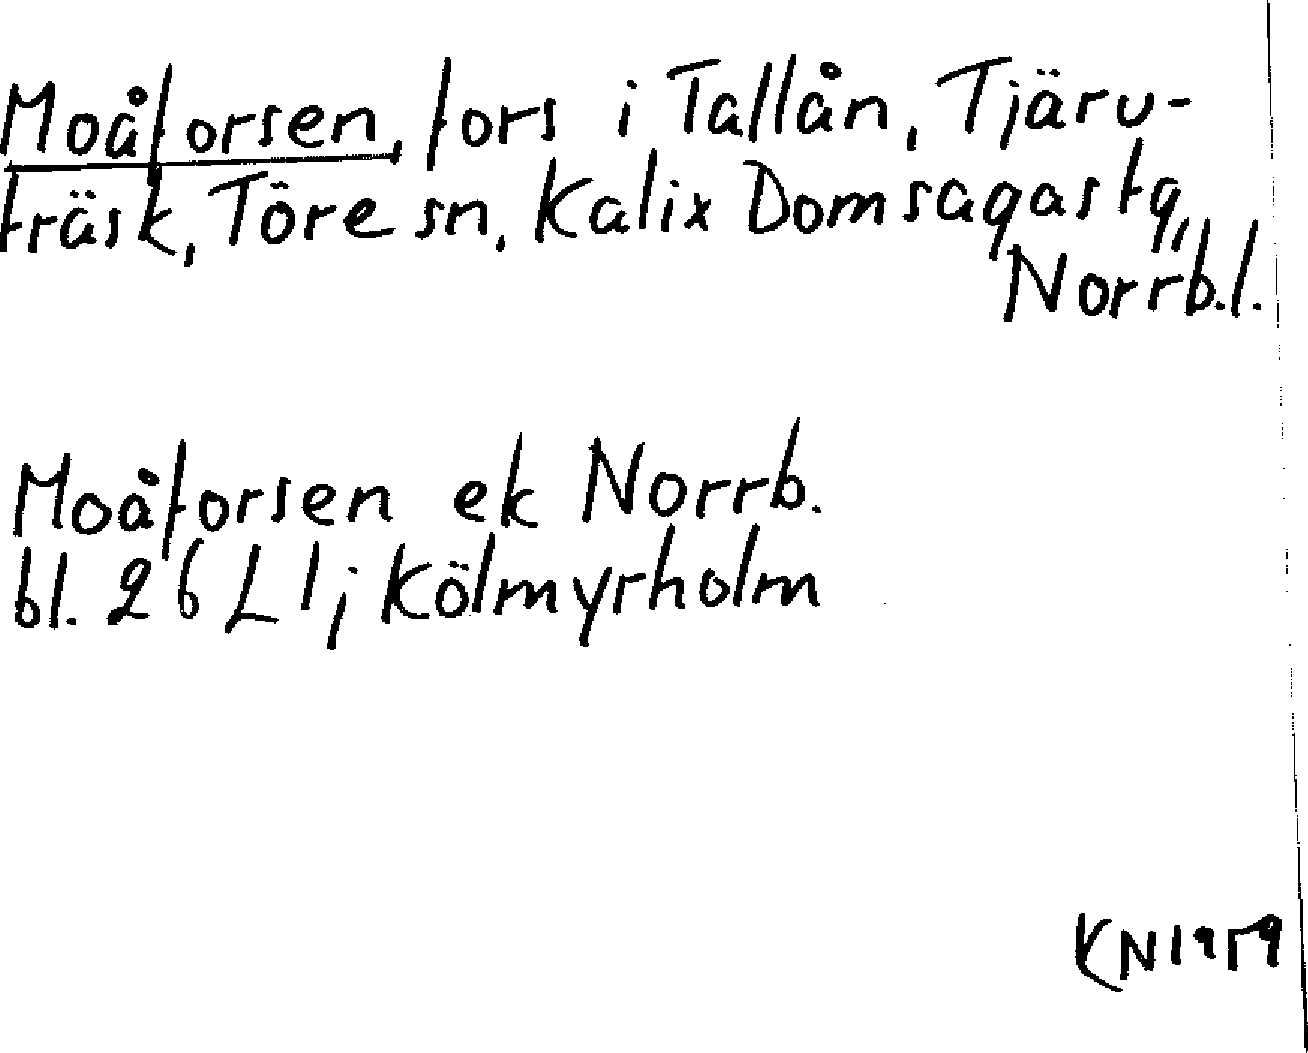 Moåforsen, fors i Tallån, Tjäru-
träsk, Töre sn, Kalix Domsagas tg,
Norrb.l.
Moåforsen ek Norrb.
bl. 26 L 1; Kölmyrholm
KN 1959